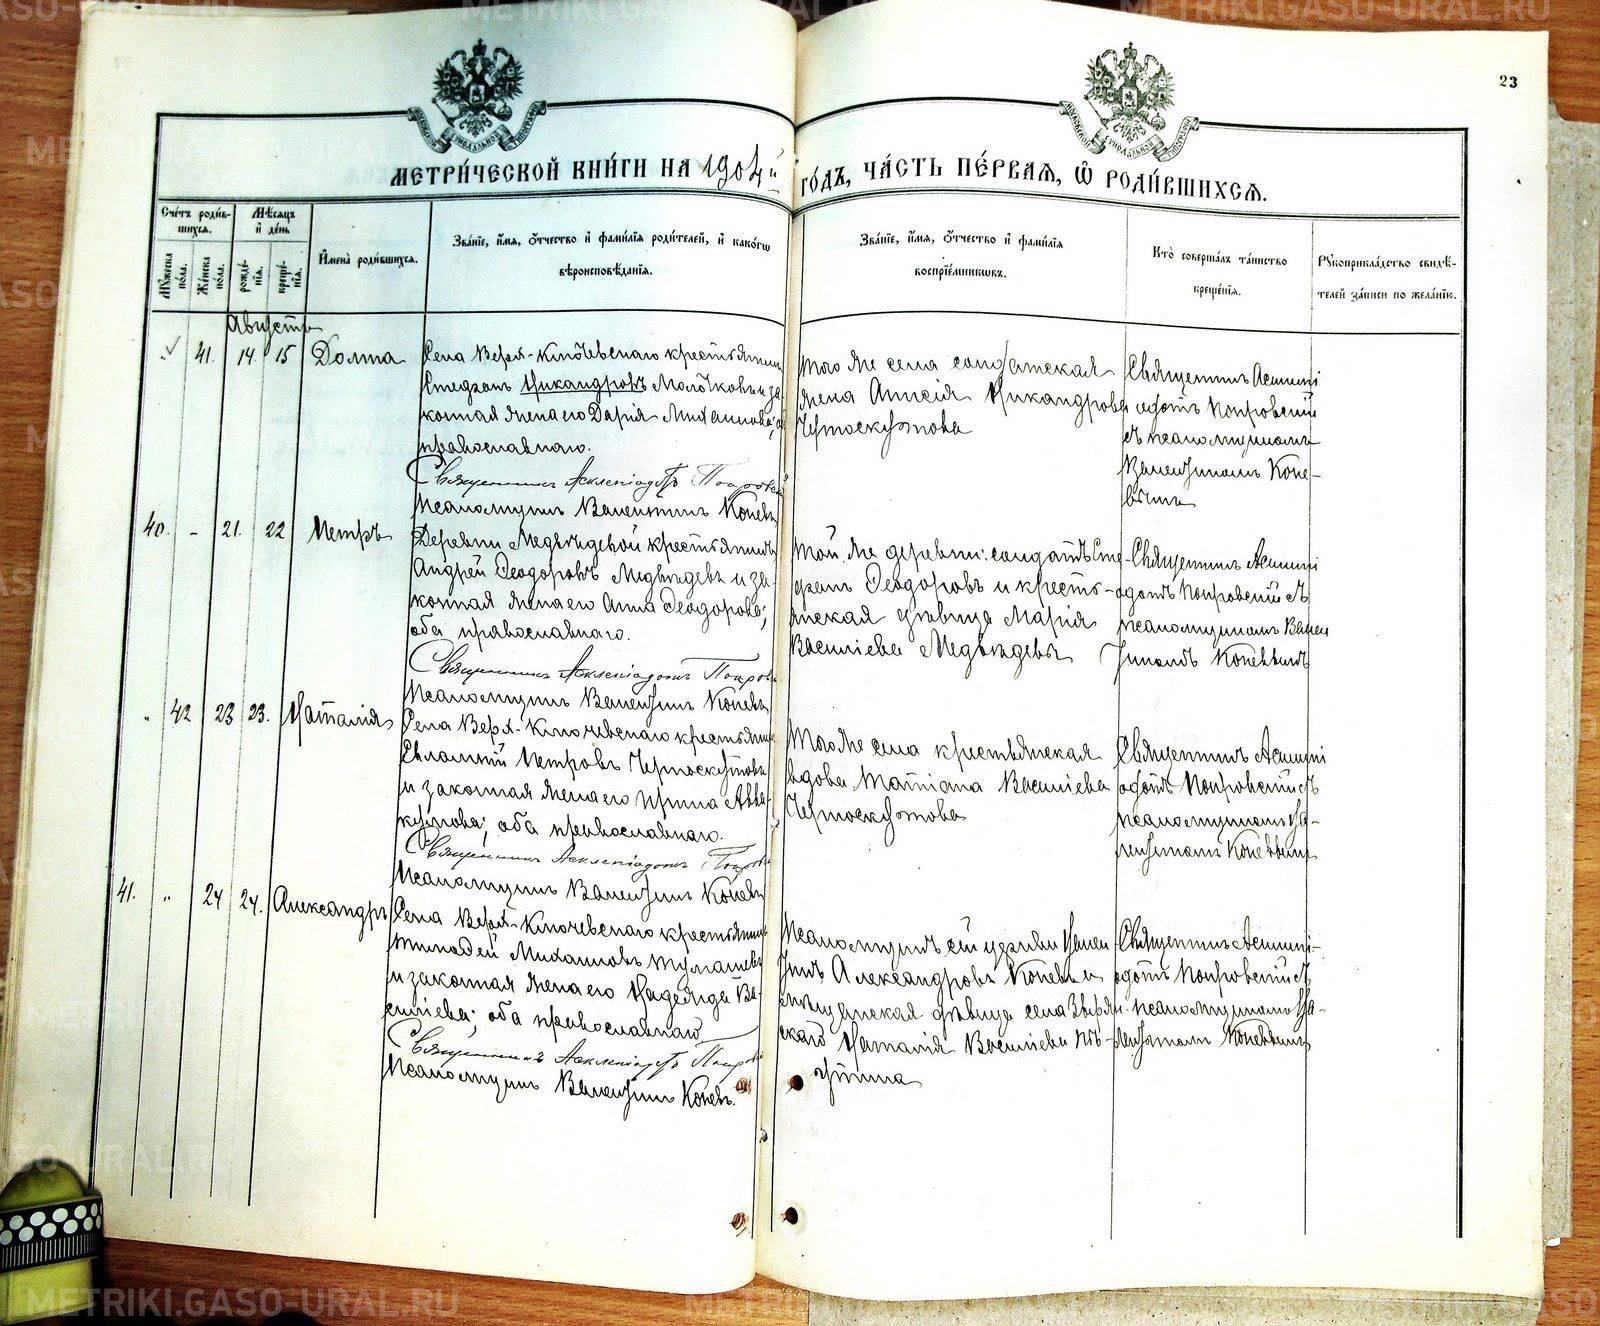 METRIKI.GASO-URAL.RU
23
МЕТРИ́ЧЕСКОЙ КНИ́ГИ НА 1904й ГО́ДЪ, ЧА́СТЬ ПЕ́РВАЯ, Ѽ РОДИ́ВШИХСЯ.
Сче́тъ роди́в-
шихся.
Мѣ́сяцъ
и҆ де́нь
Му́жеска по́ла.
Же́нска по́ла.
рожде́-
нїя.
креще́-
нїя.
И҆мена̀ роди́вшихся.
Зва́нїе, и҆́мя, ѻ҆́тчество и҆ фами́лїя роди́телей, и҆ како́гѡ
вѣроисповѣ́данїя.
Зва́нїе, и҆́мя, ѻ҆́тчество и҆ фами́лїя
воспрїе́мниковъ.
Кто̀ соверша́лъ та́инство
креще́нїя.
Рꙋкоприкла́дство свидѣ́-
телей за́писи по жела́нїю.
Августъ
" 41. 14 15 Домна
Села Верх-Ключевскаго крестьянинъ
Стефанъ Никандровъ Молочковъ и за-
конная жена его Дарія Михаилова; оба
православнаго.
Священникъ Асклепіадотъ Покровскій
Псаломщикъ Валентинъ Коневъ
Того же села солдатская
жена Никандрова
Черноскутова
Священникъ Асклепі
адотъ Покровскій
съ псаломщикомъ
Валентиномъ Коне-
вымъ
40. - 21. 22 Петръ
Деревни Медвѣдевой крестьянинъ
Андрей Ѳеодоровъ Медвѣдевъ и за-
конная жена его Анна Ѳеодорова;
оба православнаго.
Священникъ Асклепіадотъ Покров
Псаломщикъ Валентинъ Коневъ
Той же деревни солдатъ Сте-
фанъ Ѳеодоровъ и кресть-
янская дѣвица Марія
Васильева Медвѣдевы
Священникъ Асклепі
адотъ Покровскій съ
псаломщикомъ Вален
тиномъ Коневымъ
" 42 23 23. Наталія
Села Верх-Ключевскаго крестьянинъ
Евлампій Петровъ Черноскутовъ
и законная жена его Ирина Авва-
кумова; оба православнаго.
Священникъ Асклепіадотъ Покров
Псаломщикъ Валентинъ Коневъ
Того же села крестьянская
вдова Татіана Васильева
Черноскутова
Священникъ Асклепі
адотъ Покровскій съ
псаломщикомъ Ва-
лентиномъ Коневымъ
41. " 24 24. Александръ
Села Верх-Ключевскаго крестьянинъ
Тимофей Михаиловъ Тумашевъ
и законная жена его Надежда Ва-
сильева; оба православнаго
Священникъ Асклепіадотъ Покров
Псаломщикъ Валентинъ Коневъ.
Псаломщикъ сей церкви Вален
тинъ Александровъ Коневъ и
дѣвица села
Наталія Васильева
Священникъ Асклепі-
адотъ Покровскій съ
псаломщикомъ Ва-
лентиномъ Коневымъ
METRIKI.GASO-URAL.RU